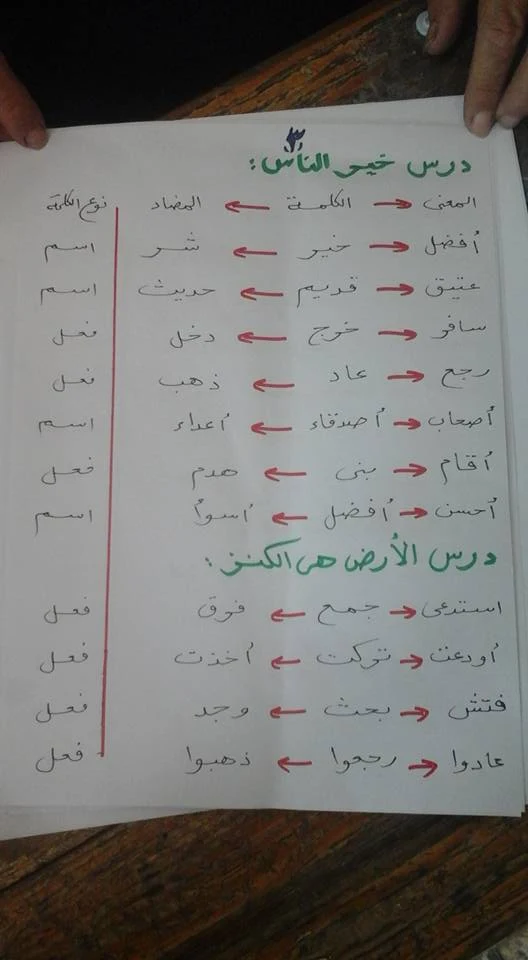 ٣
درس خير الناس :
المعنى → الكلمة ← المضاد نوع الكلمة
أفضل → خير ← شر اسم
عتيق → قديم ← حديث اسم
سافر → خرج ← دخل فعل
رجع → عاد ← ذهب فعل
أصحاب → أصدقاء ← أعداء اسم
أقام → بنى ← هدم فعل
أحسن → أفضل ← أسوأ اسم
درس الأرض هى الكنز :
استدعى → جمع ← فرق فعل
أودعت → تركت ← أخذت فعل
فتش → بحث ← وجد فعل
عادوا → رجعوا ← ذهبوا فعل